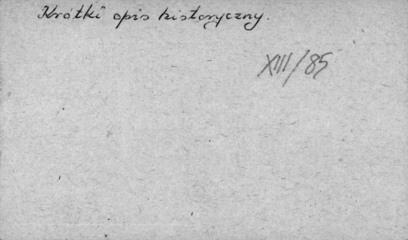 Krótki opis historyczny.
XIII/85